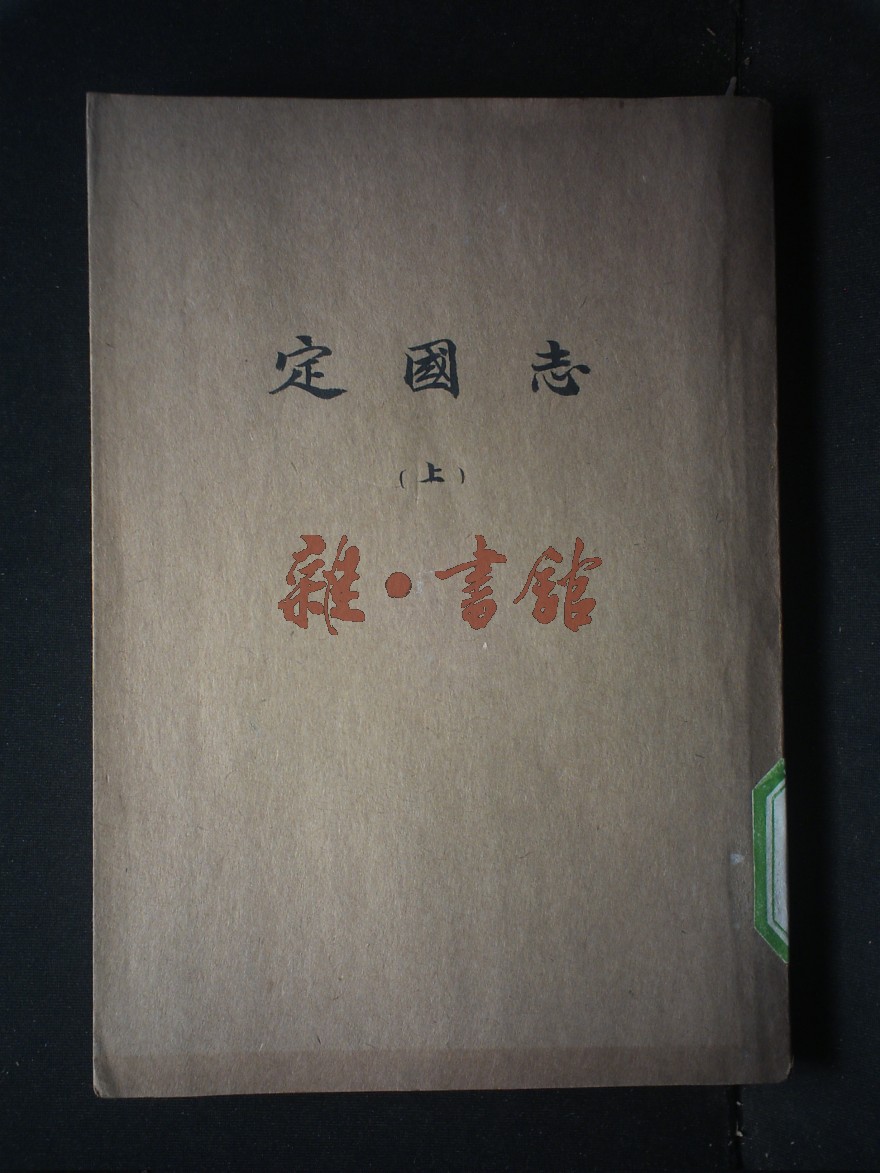 定國志
(上)
雜·書館